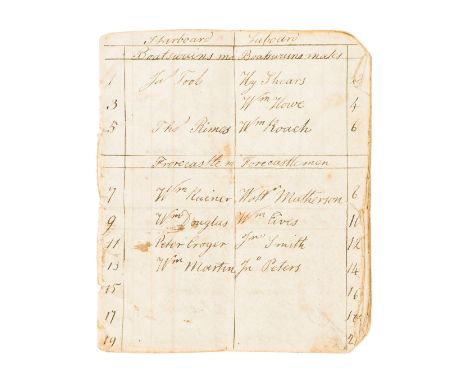 Starboard Laboard
Boatswains ma Boatswains mates
1 Jas Tool Hy Shears
3 Wm Howe 4
5 Thos Rimes Wm Roach 6
Forecastle m Forecastle men
7 Wm Rainer Matherson 8
9 Wm Douglas Wm Eives 10
11 Peter Croyer Jno Smith 12
13 Wm Martin Jno Peters 14
15 16
17 18
19 2